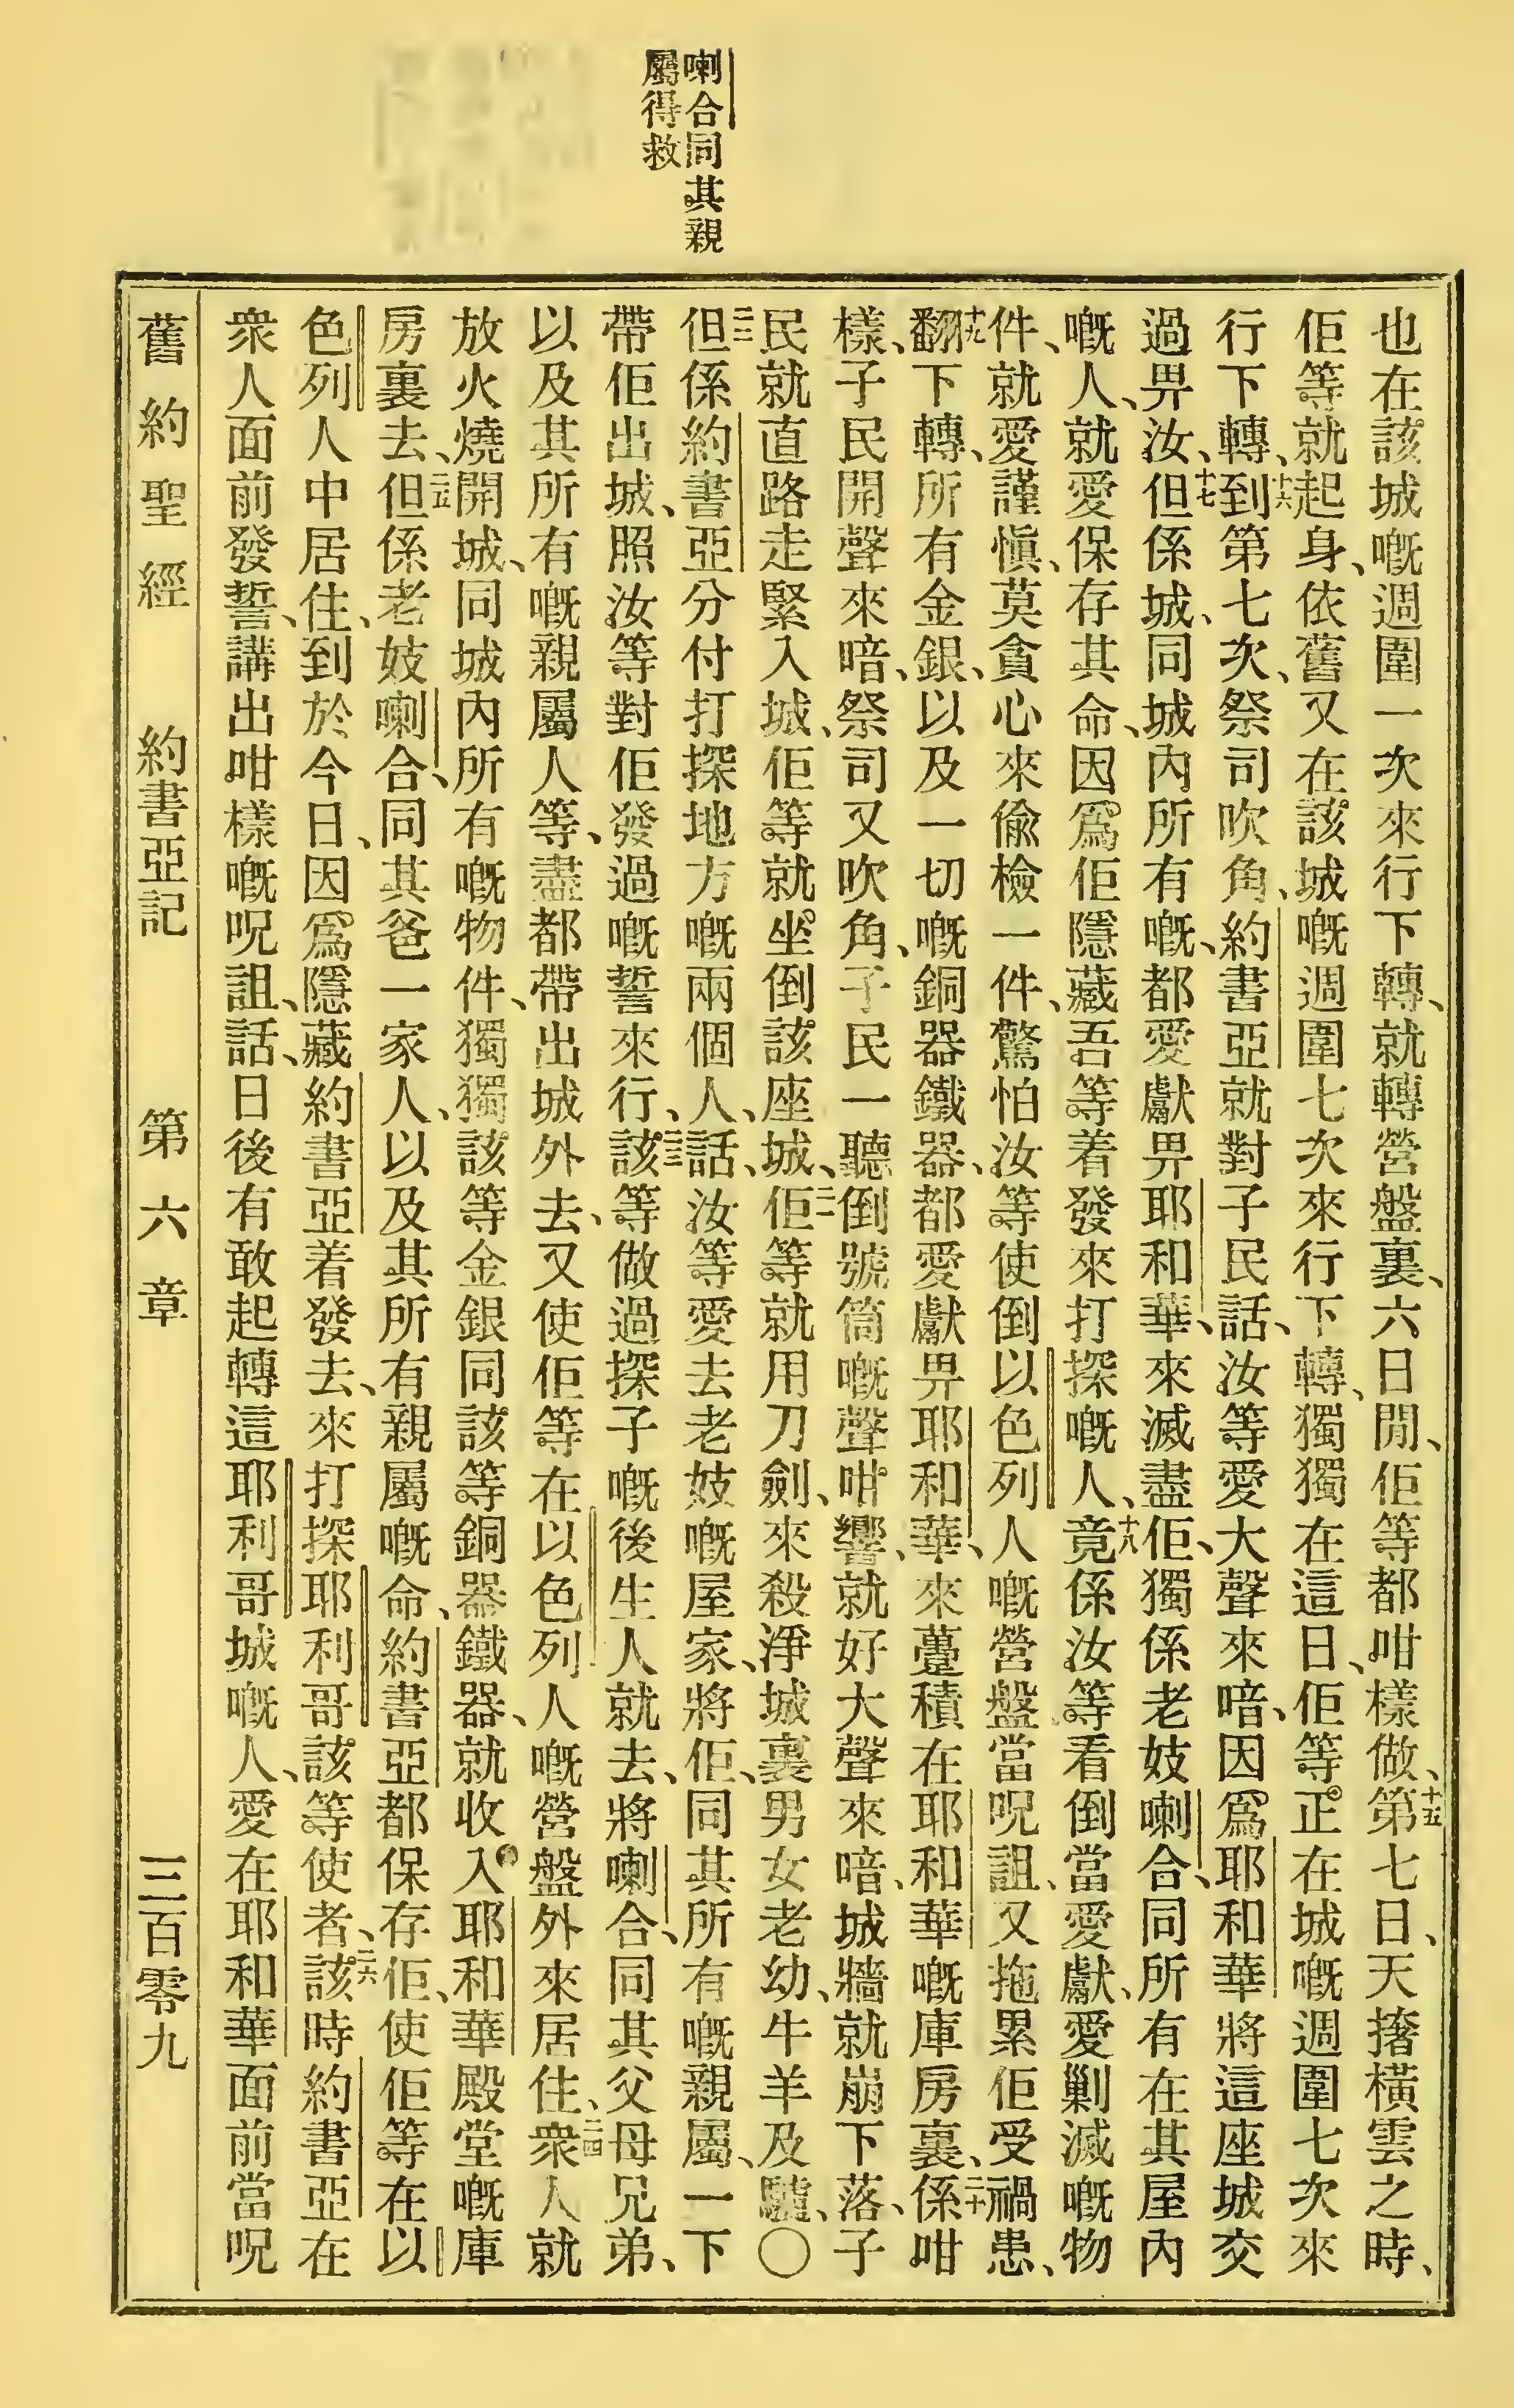 喇合同其親
屬得救
也在該城嘅週圍一次來行下轉、就轉營盤裏、六日間、佢等都咁樣做、十五第七日、天撦橫雲之時、
佢等就起身、依舊又在該城嘅週圍七次來行下轉、獨獨在這日、佢等正在城嘅週圍七次來
行下轉、十六到第七次、祭司吹角、約書亞就對子民話、汝等愛大聲來喑、因爲耶和華將這座城交
過畀汝、十七但係城、同城內所有嘅、都愛獻畀耶和華、來滅盡佢、獨係老妓喇合、同所有在其屋內
嘅人、就愛保存其命、因爲佢隱藏吾等着發來打探嘅人、十八竟係汝等看倒當愛獻、愛剿滅嘅物
件、就愛謹愼、莫貪心來偸檢一件、驚怕汝等使倒以色列人嘅營盤當呪詛、又拖累佢受禍患、
十九翻下轉、所有金銀、以及一切嘅銅器鐵器、都愛獻畀耶和華、來躉積在耶和華嘅庫房裏、二十係咁
樣、子民開聲來喑、祭司又吹角、子民一聽倒號筒嘅聲咁響、就好大聲來喑、城牆就崩下落、子
民就直路走緊入城、佢等就坐倒該座城、二一佢等就用刀劍、來殺淨城裏男女老幼、牛羊及驢、〇
二二但係約書亞分付打探地方嘅兩個人、話、汝等愛去老妓嘅屋家、將佢、同其所有嘅親屬、一下
帶佢出城、照汝等對佢發過嘅誓來行、二三該等做過探子嘅後生人就去、將喇合、同其父母兄弟、
以及其所有嘅親屬人等、盡都帶出城外去、又使佢等在以色列人嘅營盤外來居住、二四衆人就
放火燒開城、同城內所有嘅物件、獨獨該等金銀同該等銅器鐵器、就收入耶和華殿堂嘅庫
房裏去、二五但係老妓喇合、同其爸一家人、以及其所有親屬嘅命、約書亞都保存佢、使佢等在以
色列人中居住、到於今日、因爲隱藏約書亞着發去、來打探耶利哥該等使者、二六該時約書亞在
衆人面前發誓、講出咁樣嘅呪詛、話、日後有敢起轉這耶利哥城嘅人、愛在耶和華面前當呪
舊約聖經 約書亞記 第六章 三百零九